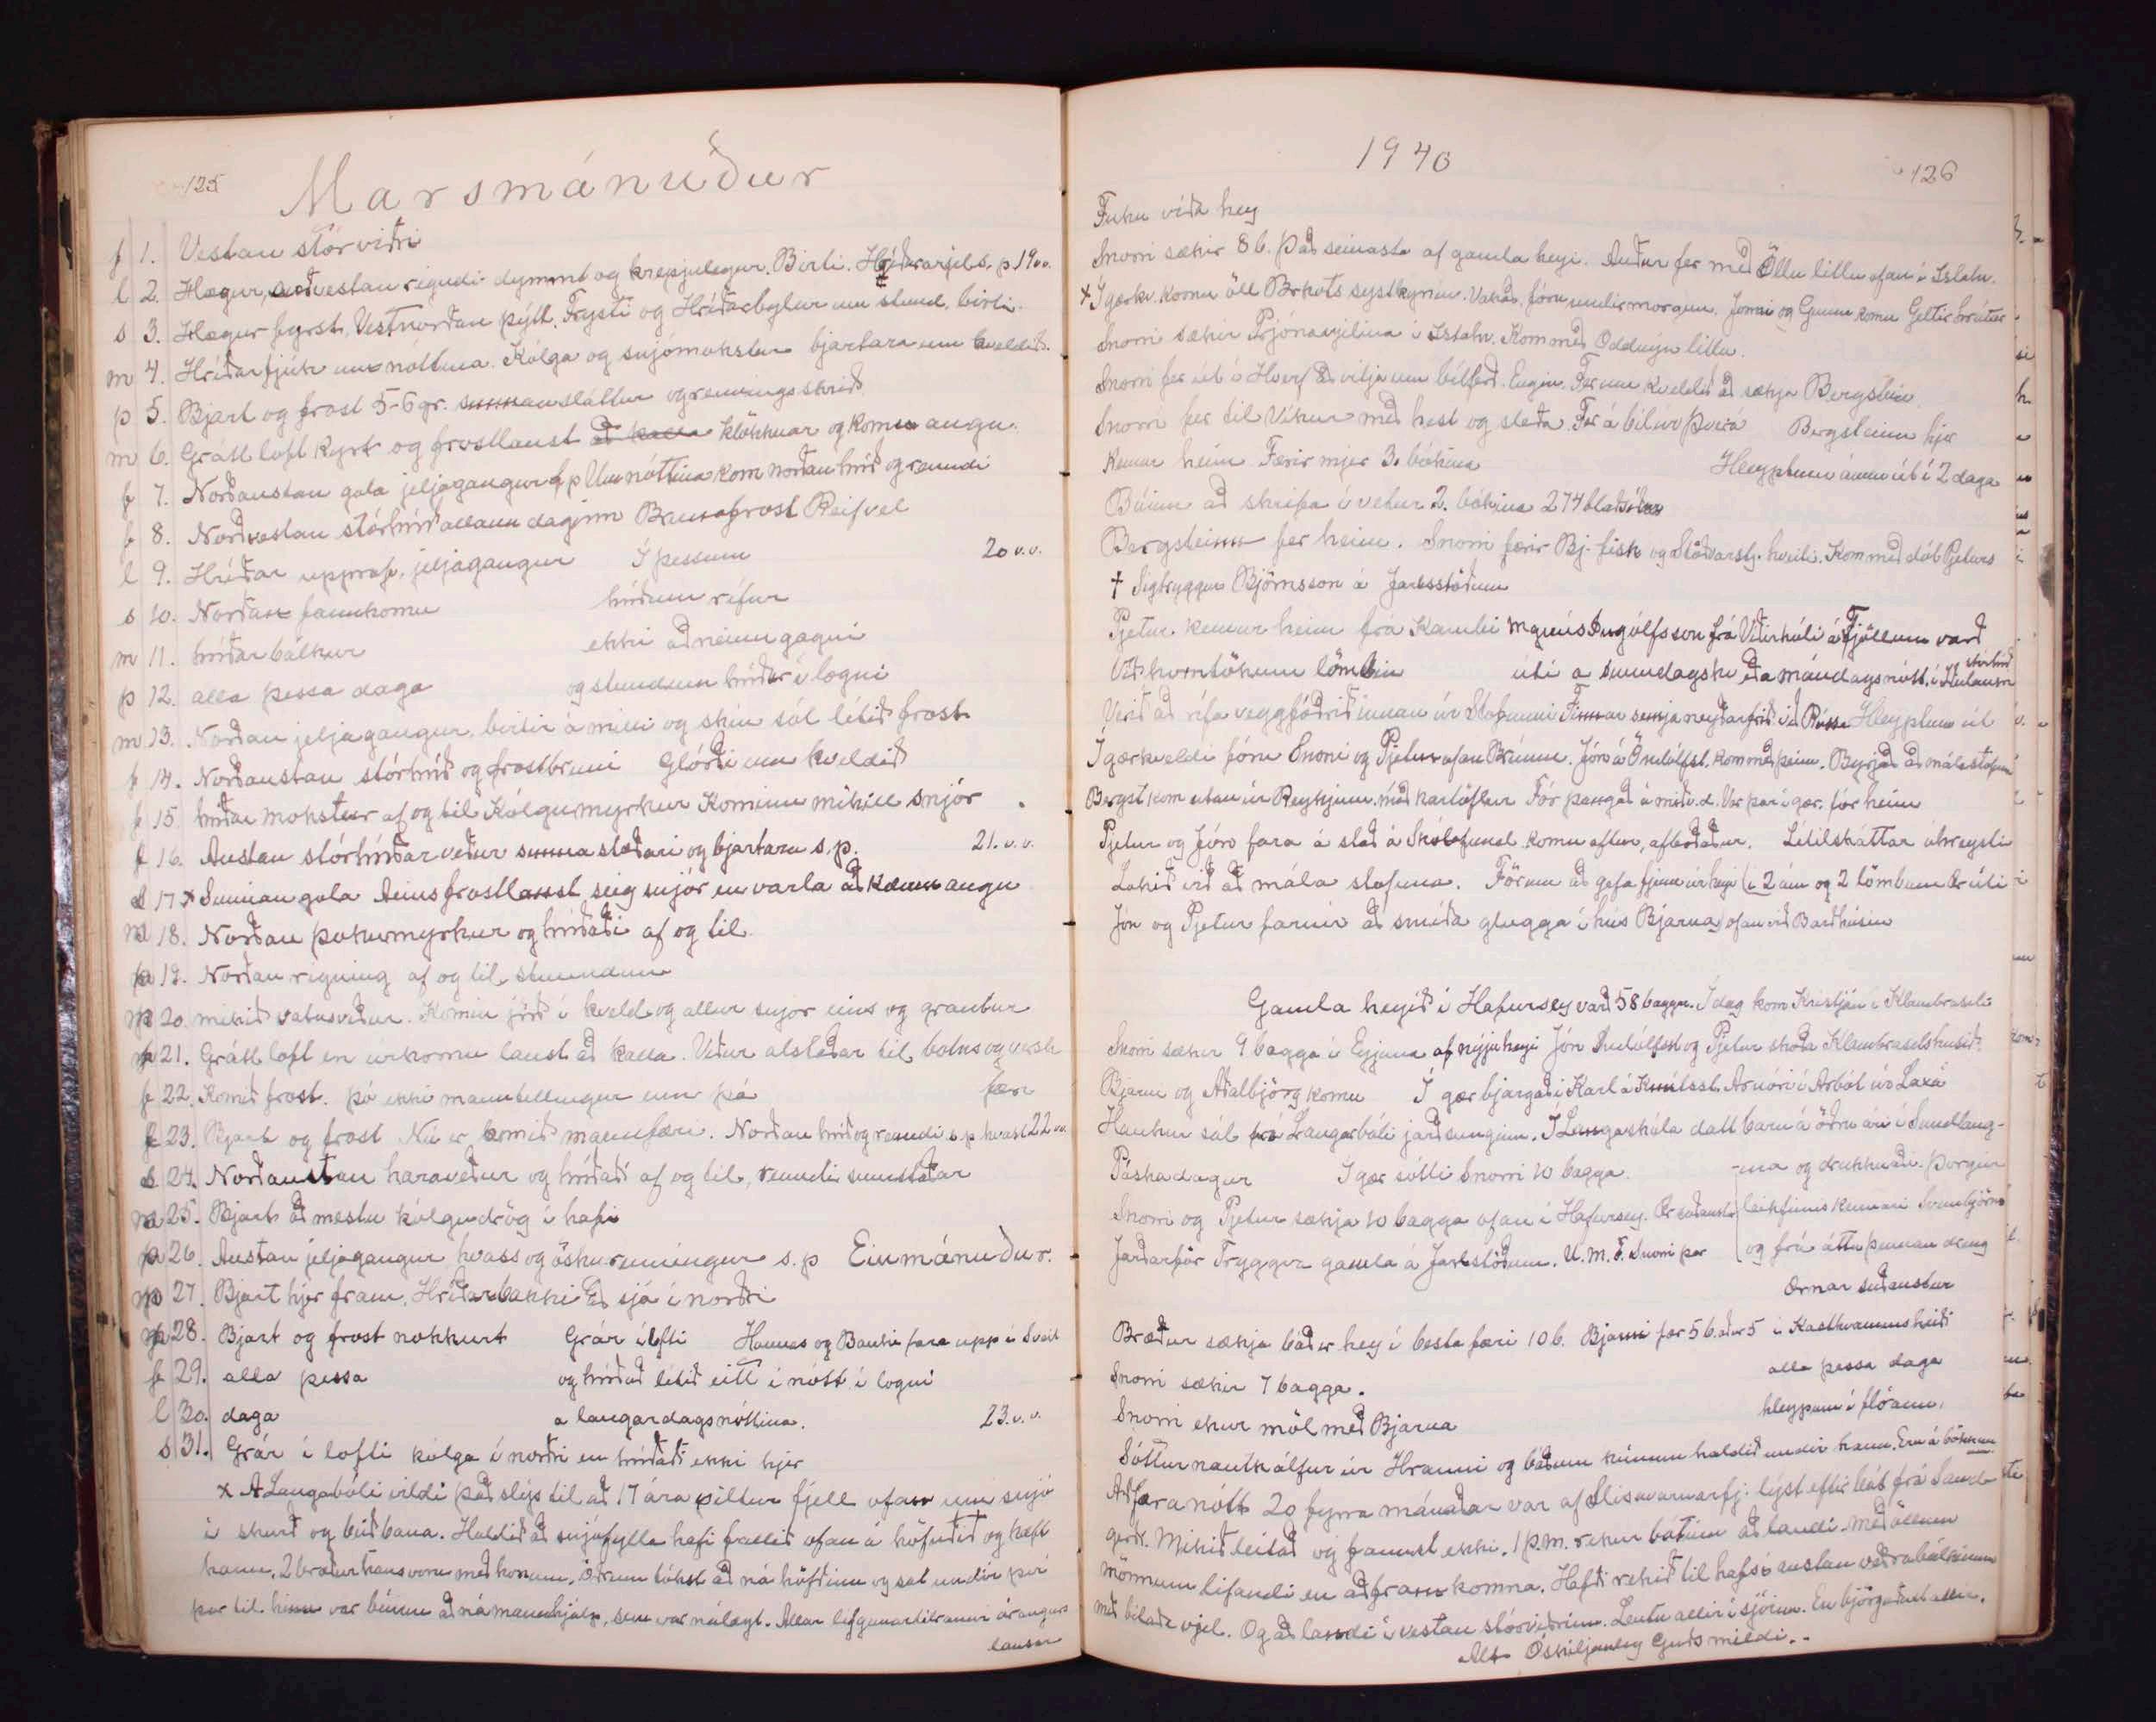 125
Marsmánuður
f 1. Vestan stórviðri
l 2. Hægur, suðvestan rigndi dymmt og krepjulegur. Birti. Hríðarjel s.p 19 v.v.
s 3. Hægur fyrst, Vestnorðan þýtt. Frysti og Hríðarbylur um stund, birti.
m 4. Hríðarfjúk um nóttina. Kólga og snjómokstur bjartara um kveldið.
þ 5. Bjart og frost 5-6 gr. sunnansláttur og rennings skrið
m 6. Grátt loft kyrt og frostlaust að kalla klökknar og komu augu.
f 7. Norðaustan gola jeljagangur s p Um nóttina kom norðanhríð og renndi
f 8. Norðvestan stórhríð allann daginn Brunafrost Reif vel
l 9. Hríðar upprof, jeljagangur Í þessum 20 v.v.
s 10. Norðan fannkomu hríðum rífur
m 11. hríðarbálkur ekki að neinu gagni
þ 12. alla þessa daga og stundum hríðar í logni
m 13. Norðan jeljagangur, birtir á milli og skín sól lítið frost
f 14. Norðaustan stórhríð og frostbruni Glórði um kveldið
f 15. hríðar mokstur af og til Kólgumyrkur Kominn mikill snjór
l 16. Austan stórhríðarveður sunna slæðari og bjartara s.p. 21. v.v.
s 17 x Sunnan gola Aeins frostlaust seig snjór en varla að kæmu augu
m 18. Norðan þokumyrkur og hríðaði af og til
þ 19. Norðan rigning af og til stundum
m 20. mikið vatnsveður. Komin jörð í kveld og allur snjór eins og grautur
f 21. Grátt loft en úrkomu laust að kalla. Veður alstaðar til botns og versta
f 22. Komið frost. þó ekki manntellingur um þá færi
l 23. Bjart og frost Nú er komið mannfæri. Norðan hríð og renndi s.p hvast 22 v.v.
s 24. Norðaustan haraveður og hríðaði af og til, renndi sumstaðar
m 25. Bjart að mestu kólgudrög í hafi
þ 26. Austan jeljagangur hvass og öskurenningur s.p Einmánuður.
m 27. Bjart hjer fram. Hríðarbakki að sjá í norðri
f 28. Bjart og frost nokkurt Grár í lofti Hannes og Bauki fara upp í Sveit
f 29. alla þessa og hríðað lítið eitt í nótt í logni
l 30. daga a laugardagsnóttina. 23. v.v.
s 31. Grár í lofti kólga í norðri en hríðaði ekki hjer
x A Laugabóli vildi það slys til að 17 ára piltur fjell ofan um snjó
í skurð og beið bana. Haldið að snjófylla hafi fallið ofan á höfuðið og kæft
hann. 2 bræður hans voru með honum. öðrum tókst að ná höfðinu og sat undir því
þar til hinn var búinn að ná mannhjálp, sem var nálægt. Allar lífgunartilraunir árangurs
lausar
1940
126
Fuku víða hey
Snorri sækir 8 b. það seinasta af gamla heyi. Auður fer með Öllu litlu ofan í Ístahv.
x Í gærkv. komu öll Brkots systkynin. Vakað, fóru undir morgun. Jonni og Gunna komu Geltir hrútur
Snorri sækir Prjónavjelina í Ístahv. Kom með Oddnýu litlu.
Snorri fer út í Hverf að vitja um bílferð. Engin. Fer um kveldið að sækja Bergstein
Snorri fer til Víkur með hest og sleða. Fer á bíl úr Þverá Bergsteinn hjer
Kemur heim Færir mjer 3. bókina Hleyptum ánum út í 2 daga
Búinn að skrifa í vetur 2. bókina 274 blaðsíður
Bergsteinn fer heim. Snorri færir Bj. fisk og Stöðvarstj. hveiti. Kom með dót Pjeturs
† Sigtryggur Björnsson á Jarlsstöðum
Pjetur kemur heim frá Kambi Magnús Ingólfsson frá Víðirhóli á Fjöllum varð
Við horntökum lömbin úti a sunnudagskv eða mánudagsnótt í stórhríð
Verið að rífa veggfóðrið innan úr Stofunni Finnar semja neyðarfrið við Rússa Hleyptum út
Í gærkveldi fóru Snorri og Pjetur ofan Brúnir. Jón á Öndólfst. kom með þeim. Byrjað að mála stofuna
Bergst kom utan úr Reykjum með kartöflur Fór þangað á miðv.d. Var þar í gær. fór heim
Pjetur og Jón fara á stað á Skólafund komu aftur, afboðaður. Lítilsháttar óhreysti
Lokið við að mála stofuna. Förum að gefa fjenu úr heyi (í 2 ám og 2 lömbum Ær úti
Jón og Pjetur farnir að smíða glugga í hús Bjarna, ofan við Barðhúsin
Gamla heyið í Hafursey varð 58 bagga. Í dag kom Kristján í Klambraseli
Snorri sækir 9 bagga í Eyjuna af nýju heyi Jón Öndólfsst og Pjetur skoða Klambraselshúsið.
Bjarni og Aðalbjörg komu Í gær bjargaði Karl á Knútsst. Arnóri í Árbót úr Laxá
Haukur sál frá Laugabóli jarðsunginn. Í Laugaskála datt barn á öðru ári í Sundlaug-
Páskadagur Í gær sótti Snorri 10 bagga. -ina og drukknaði. Þorgeir
Snorri og Pjetur sækja 10 bagga ofan í Hafursey. leikfimis kennari Sveinbjörns
Jarðarför Tryggva gamla á Jarlstöðum. U.M.F. Snorri þar og frú áttu þennan dreng
Ærnar suðaustur
Bræður sækja báðir hey í besta færi 10 b. Bjarni fær 5 b. aðrir 5 í Kasthvammsheiði
alla þessa daga
Snorri sækir 7 bagga.
hleypum í flóann.
Snorri ekur möl með Bjarna
Sóttur nautkálfur úr Hrauni og báðum kúnum haldið undir hann. Eru á bókum
Aðfaranótt 20 fyrra mánaðar var af Slisavarnarfj. lýst eftir bát frá Sand-
gerði. Mikið leitað og fannst ekki. 1 þ.m. rekur bátinn að landi með öllum
mönnum lifandi en aðframkomna. Hafði rekið til hafs í austan veðrabálkinum
með bilaða vjel. Og að landi í vestan stórviðrinu. Lentu allir í sjóinn. En björguðust allir.
Alt Óskiljanleg Guðs mildi.-